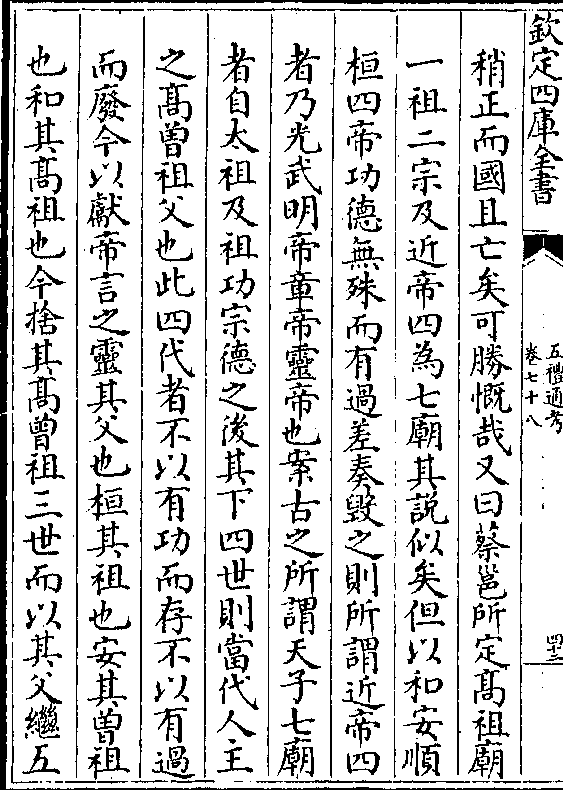 欽定四庫全書
五禮通考
卷七十八
四十三
稍正而國且亡矣可勝慨哉又曰蔡邕所定髙祖廟
一祖二宗及近帝四為七廟其説似矣但以和安順
桓四帝功德無殊而有過差奏毀之則所謂近帝四
者乃光武明帝章帝靈帝也案古之所謂天子七廟
者自太祖及祖功宗德之後其下四世則當代人主
之髙曽祖父也此四代者不以有功而存不以有過
而廢今以獻帝言之靈其父也桓其祖也安其曽祖
也和其髙祖也今捨其髙曽祖三世而以其父繼五